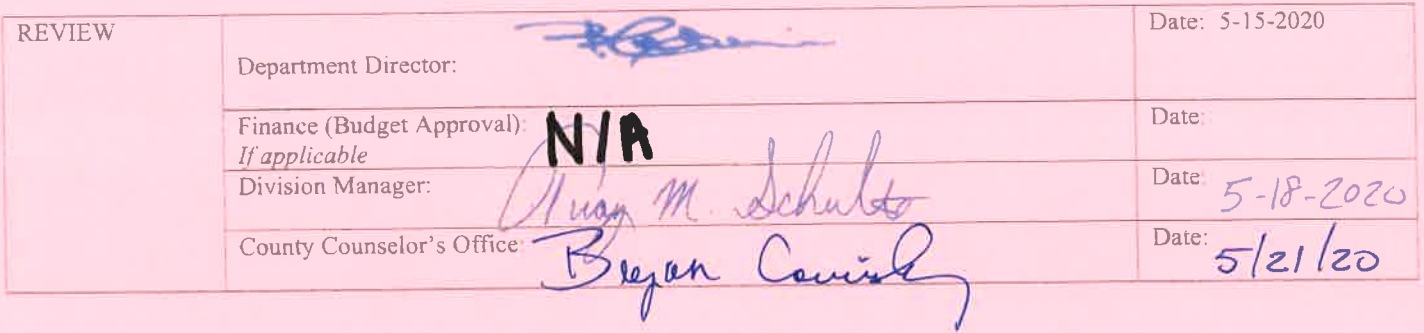 REVIEW
Department Director:
Date: 5-15-2020
Finance (Budget Approval): N/A
If applicable
Date:
Division Manager: M. Schulte
Date: 5-18-2020
County Counselor's Office: Bryan Covinsky
Date: 5/21/20